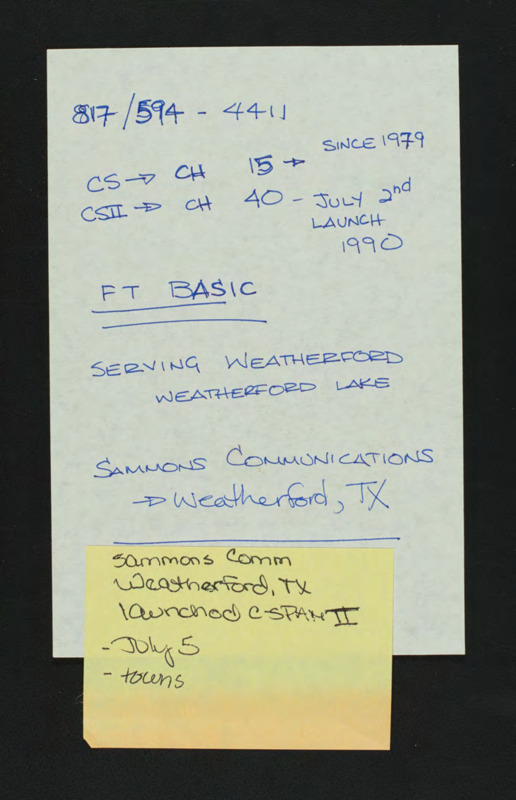 817/594 - 4411
SINCE 1979
CS → CH 15 →
CSII → CH 40 - JULY 2nd
LAUNCH
1990
FT BASIC
SERVING WEATHERFORD
WEATHERFORD LAKE
SAMMONS COMMUNICATIONS
→ Weatherford, TX
Sammons Comm
Weatherford, TX
launched C-SPAN II
- July 5
- towns